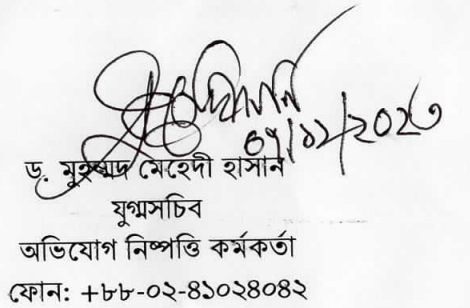 ০৭/১২/২০২৩
ড. মুহম্মদ মেহেদী হাসান
যুগ্মসচিব
অভিযোগ নিষ্পত্তি কর্মকর্তা
ফোন: +৮৮-০২-৪১০২৪০৪২